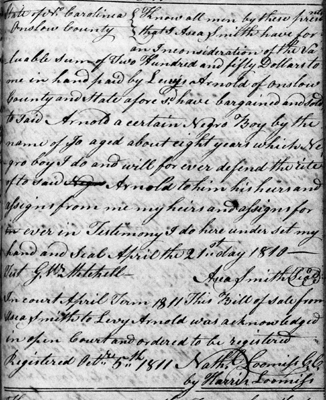 State of No. Carolina { Know all men by these presents
Onslow County { that I Asa Smith have for
an Inconsideration of the Va
luable sum of Two Hundred and fifty Dollars to
me in hand paid by Levy Arnold of onslow
County and State afores.d have bargained and sold
to said Arnold a certain Negro Boy by the
name of Jo aged about eight years which Ne
gro boy I do and will for ever defend the rite
of to said Arnold to him his heirs and
assigns from me my heirs and assigns for
in ever in Testimony I do here under set my
hand and Seal April the 21st day 1810
Test G. Wm. Mitchell Asa Smith
In court April Term 1811 This Bill of sale from
Asa Smith to Levy Arnold was acknowledged
in open Court and ordered to be registered
Registered Octr. 5th 1811 Nath. Loomiss
by Harris Loomiss